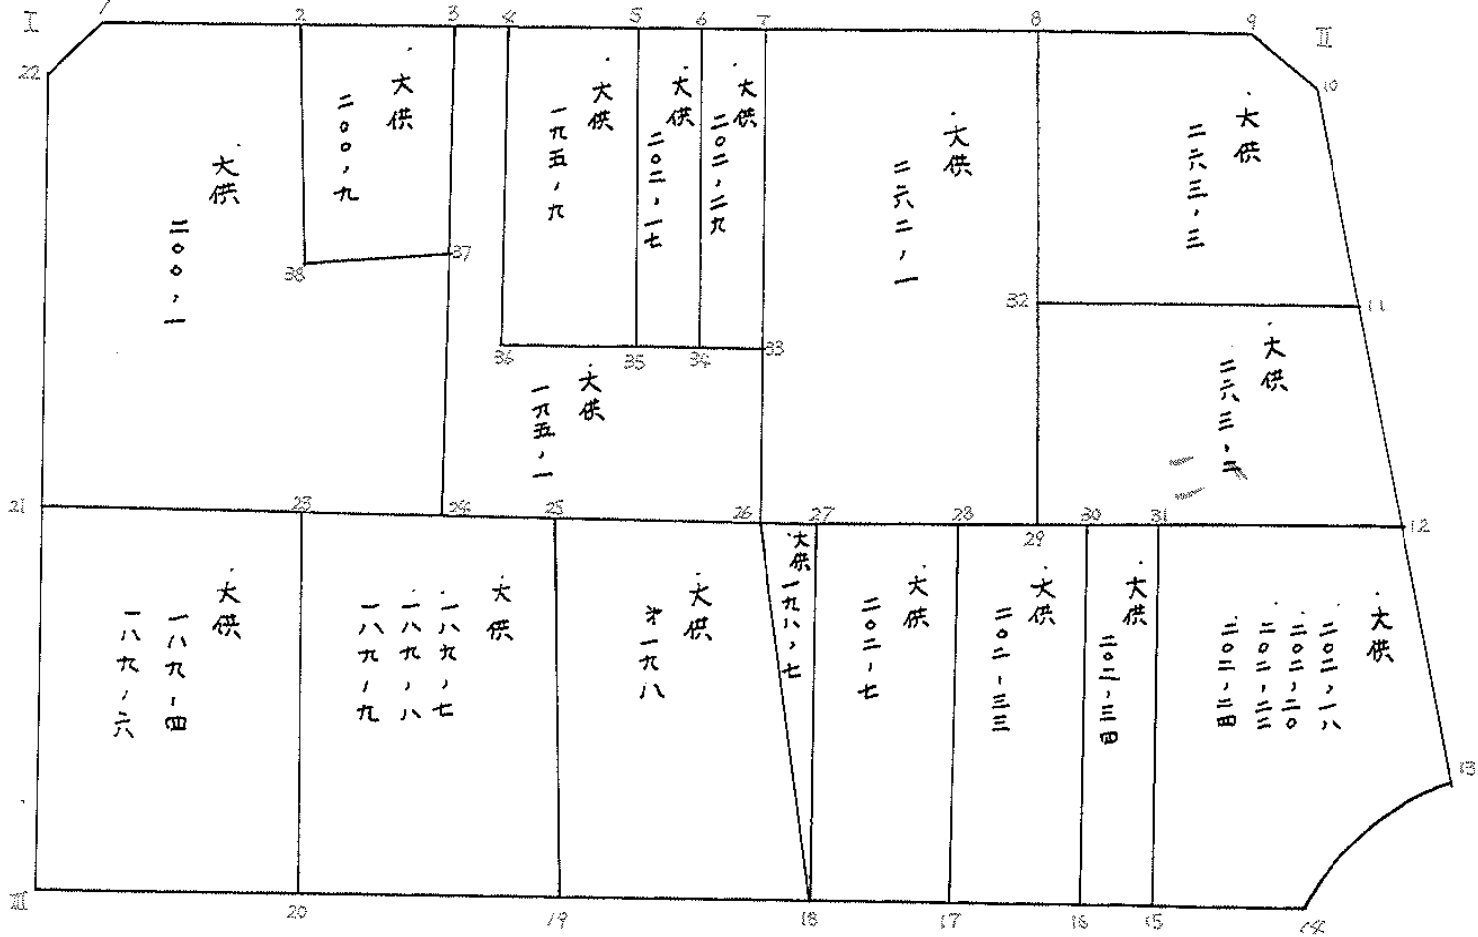 I
1
2
3
4
5
6
7
8
9
II
22
10
大供
二〇〇,一
大供
二〇〇,九
大供
一九五,九
大供
二〇二,一七
大供
二〇二,二九
大供
二六二,一
大供
二六三,三
38
37
36
35
34
33
32
11
大供
一九五,一
大供
二六三,二
21
23
24
25
26
27
28
29
30
31
12
大供
一八九,四
一八九,六
大供
一八九,七
一八九,八
一八九,九
大供
一九八
大供
一九八,七
大供
二〇二,七
大供
二〇二,三三
大供
二〇二,三四
大供
二〇二,一八
二〇二,二〇
二〇二,二二
二〇二,二四
13
III
20
19
18
17
16
15
14